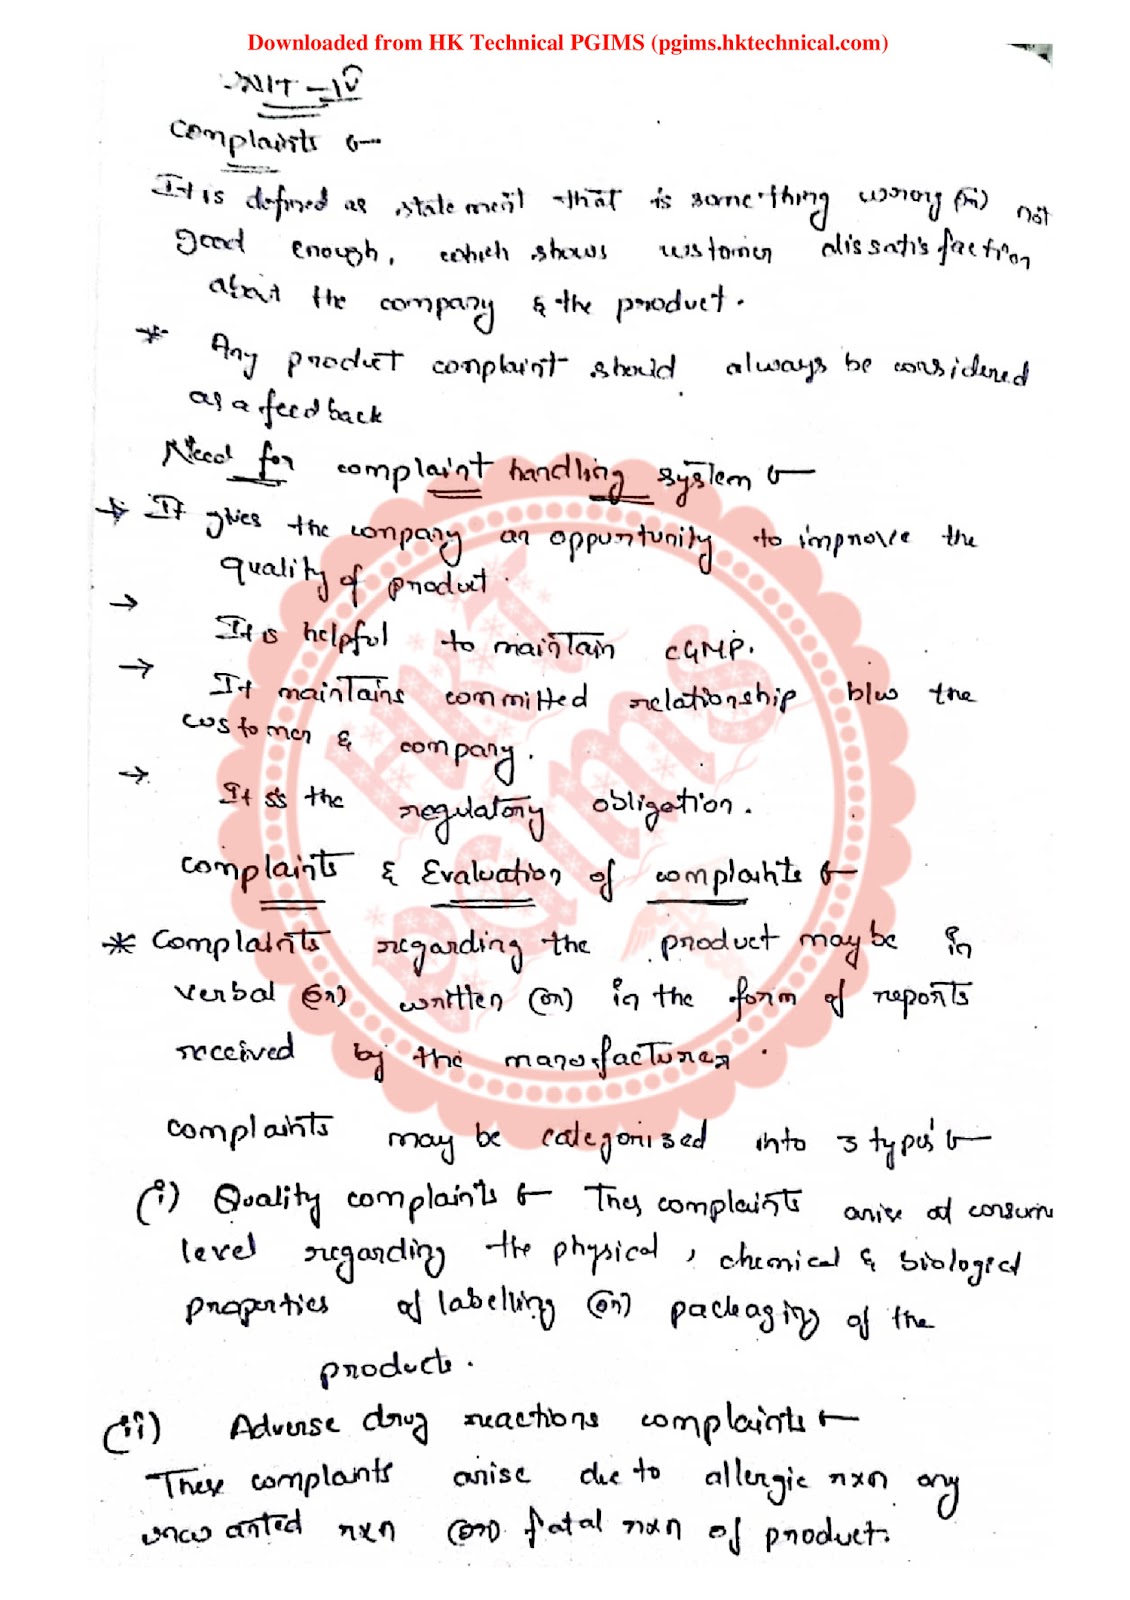 Downloaded from HK Technical PGIMS (pgims.hktechnical.com)
UNIT - IV
Complaints :-
It is defined as statement that is something wrong (or) not
good enough, which shows customer dissatisfaction
about the company & the product.
* Any product complaint should always be considered
as a feedback
Need for complaint handling system :-
→ It gives the company an oppurtunity to improve the
quality of product.
→ It is helpful to maintain cGMP.
→ It maintains committed relationship b/w the
customer & company.
→ It is the regulatory obligation.
Complaints & Evaluation of complaints :-
* Complaints regarding the product may be in
verbal (or) written (or) in the form of reports
received by the manufacturer.
complaints may be categorised into 3 types :-
(i) Quality complaints :- Thes complaints arise at consum
level regarding the physical, chemical & biological
properties of labelling (or) packaging of the
products.
(ii) Adverse drug reactions complaints :-
These complaints arise due to allergic rxn any
unwanted rxn (or) fatal rxn of product.
HKT
PGIMS